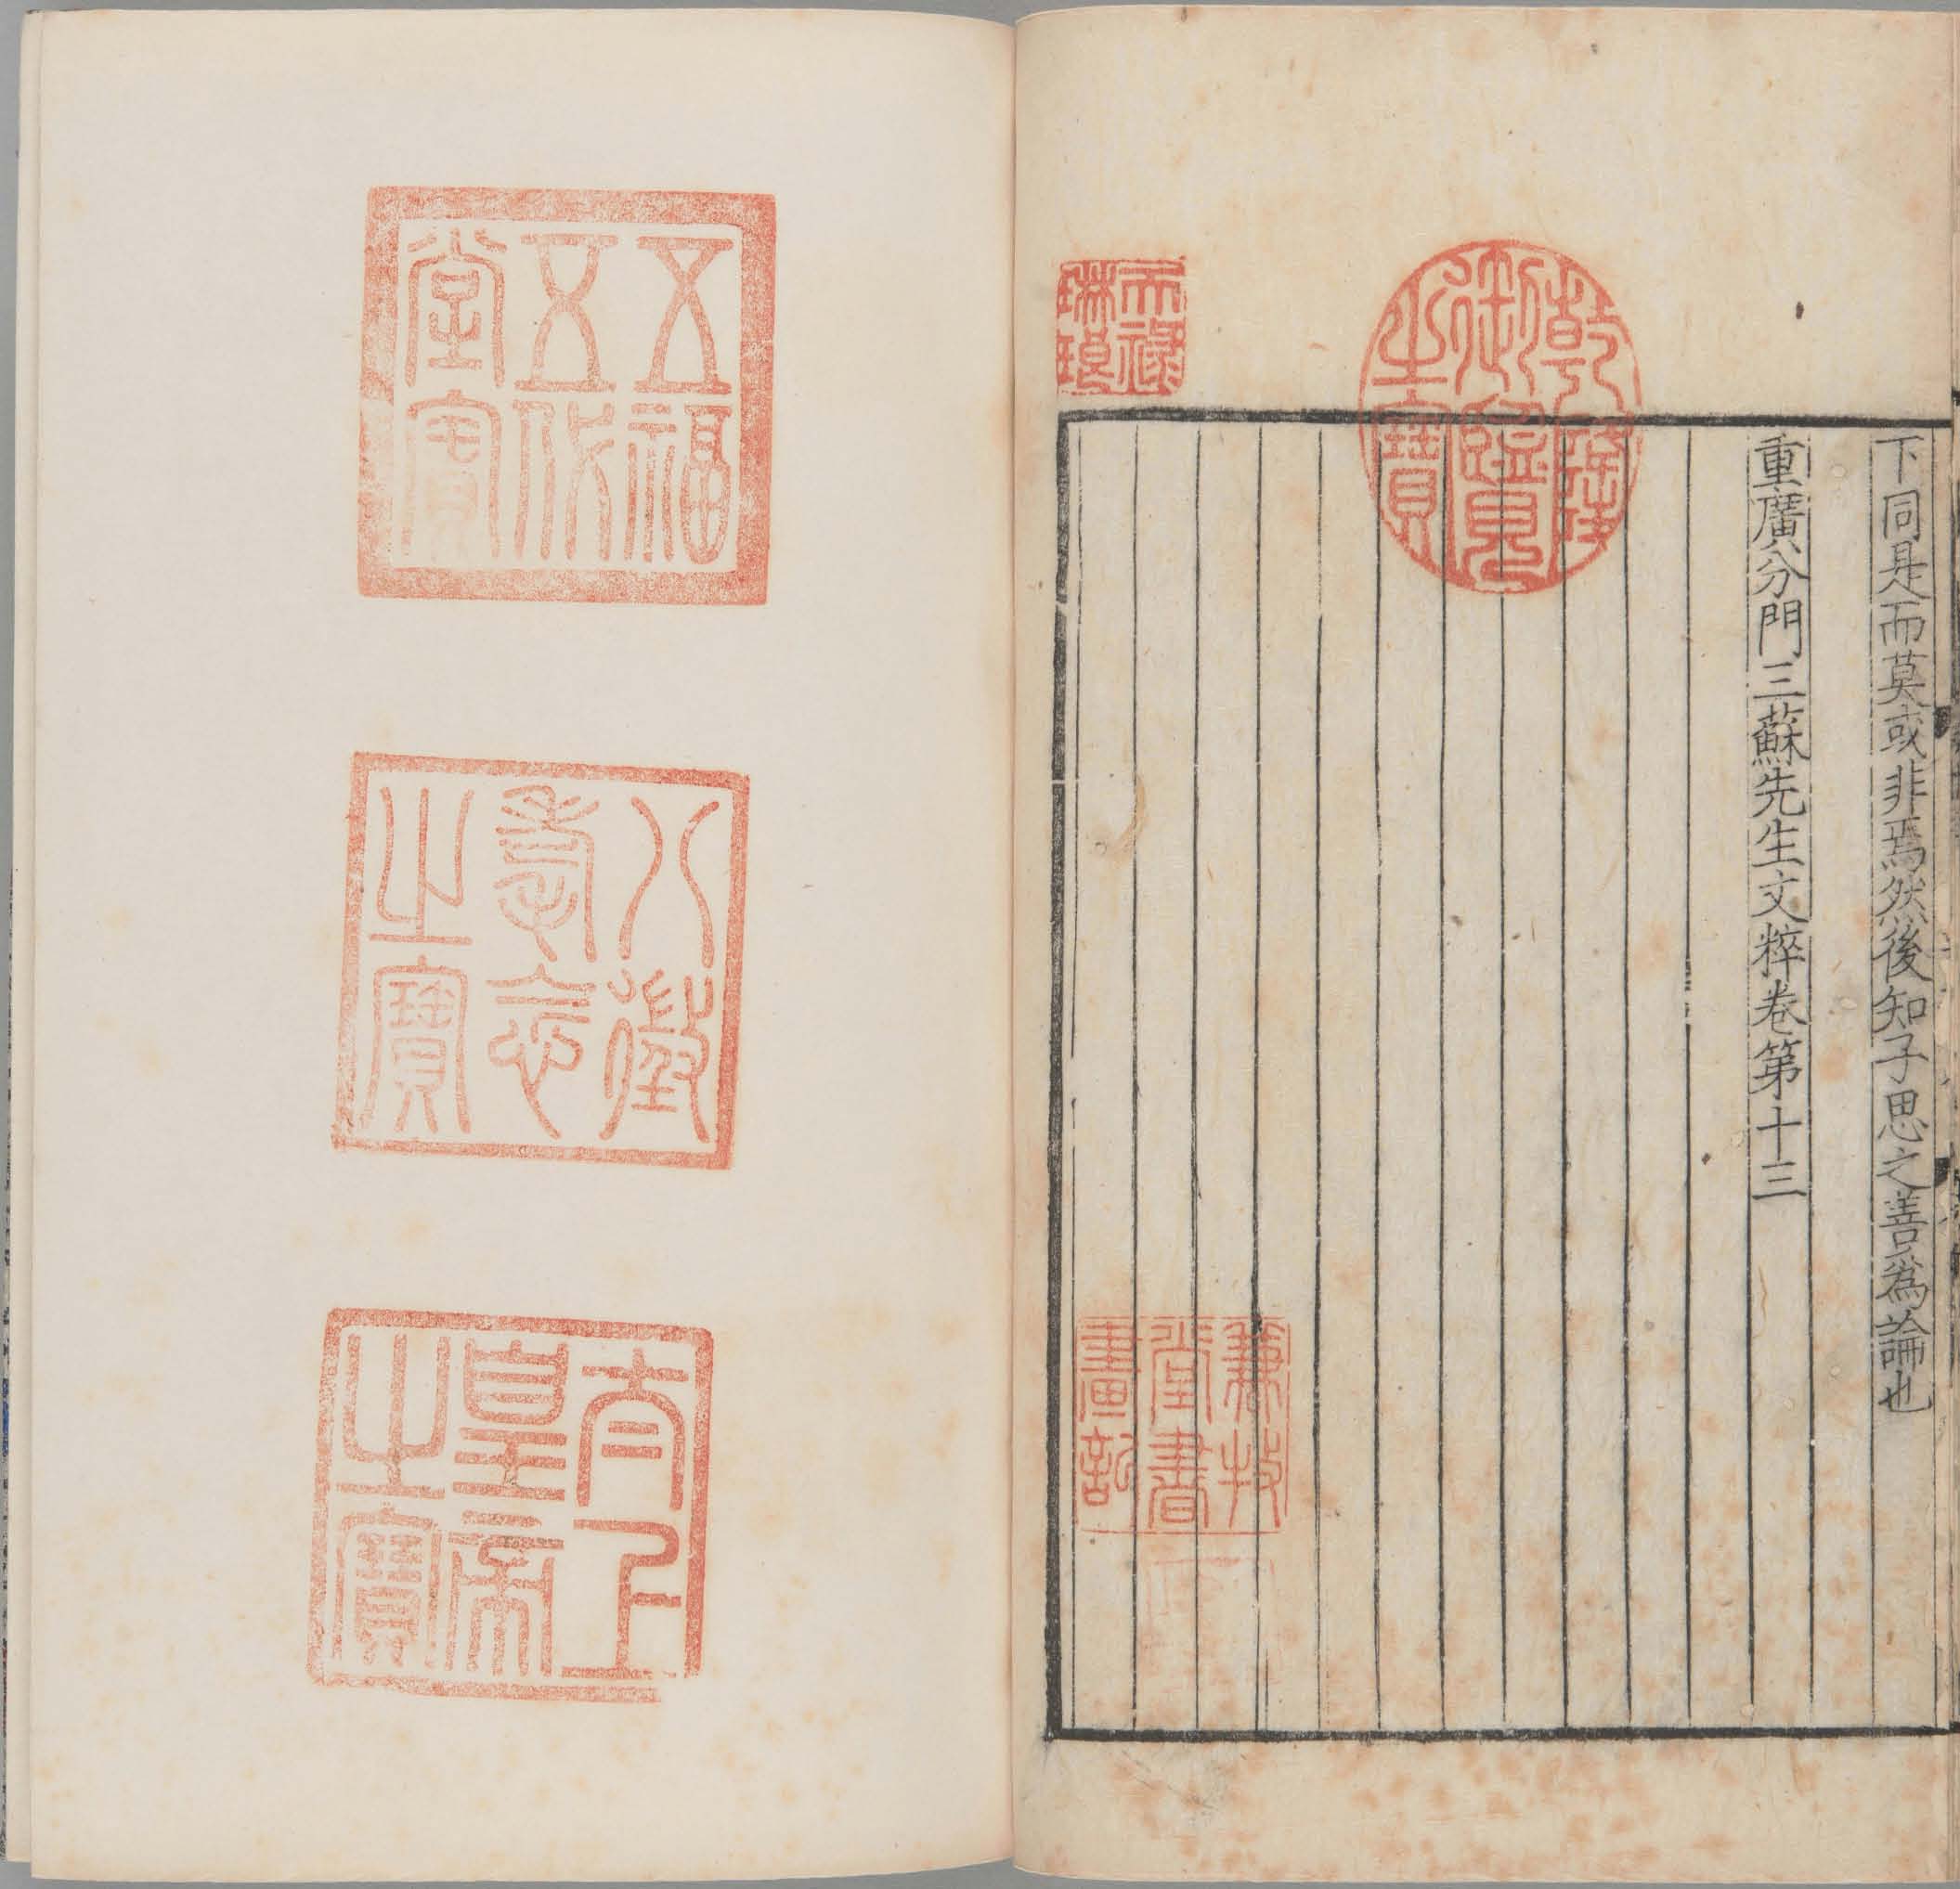 下同是而莫或非焉然後知子思之善為論也
重廣分門三蘇先生文粹卷第十三
乾隆御覽之寶
天祿琳琅
謙牧堂書畫記
五福五代堂寶
八徵耄念之寶
太上皇帝之寶